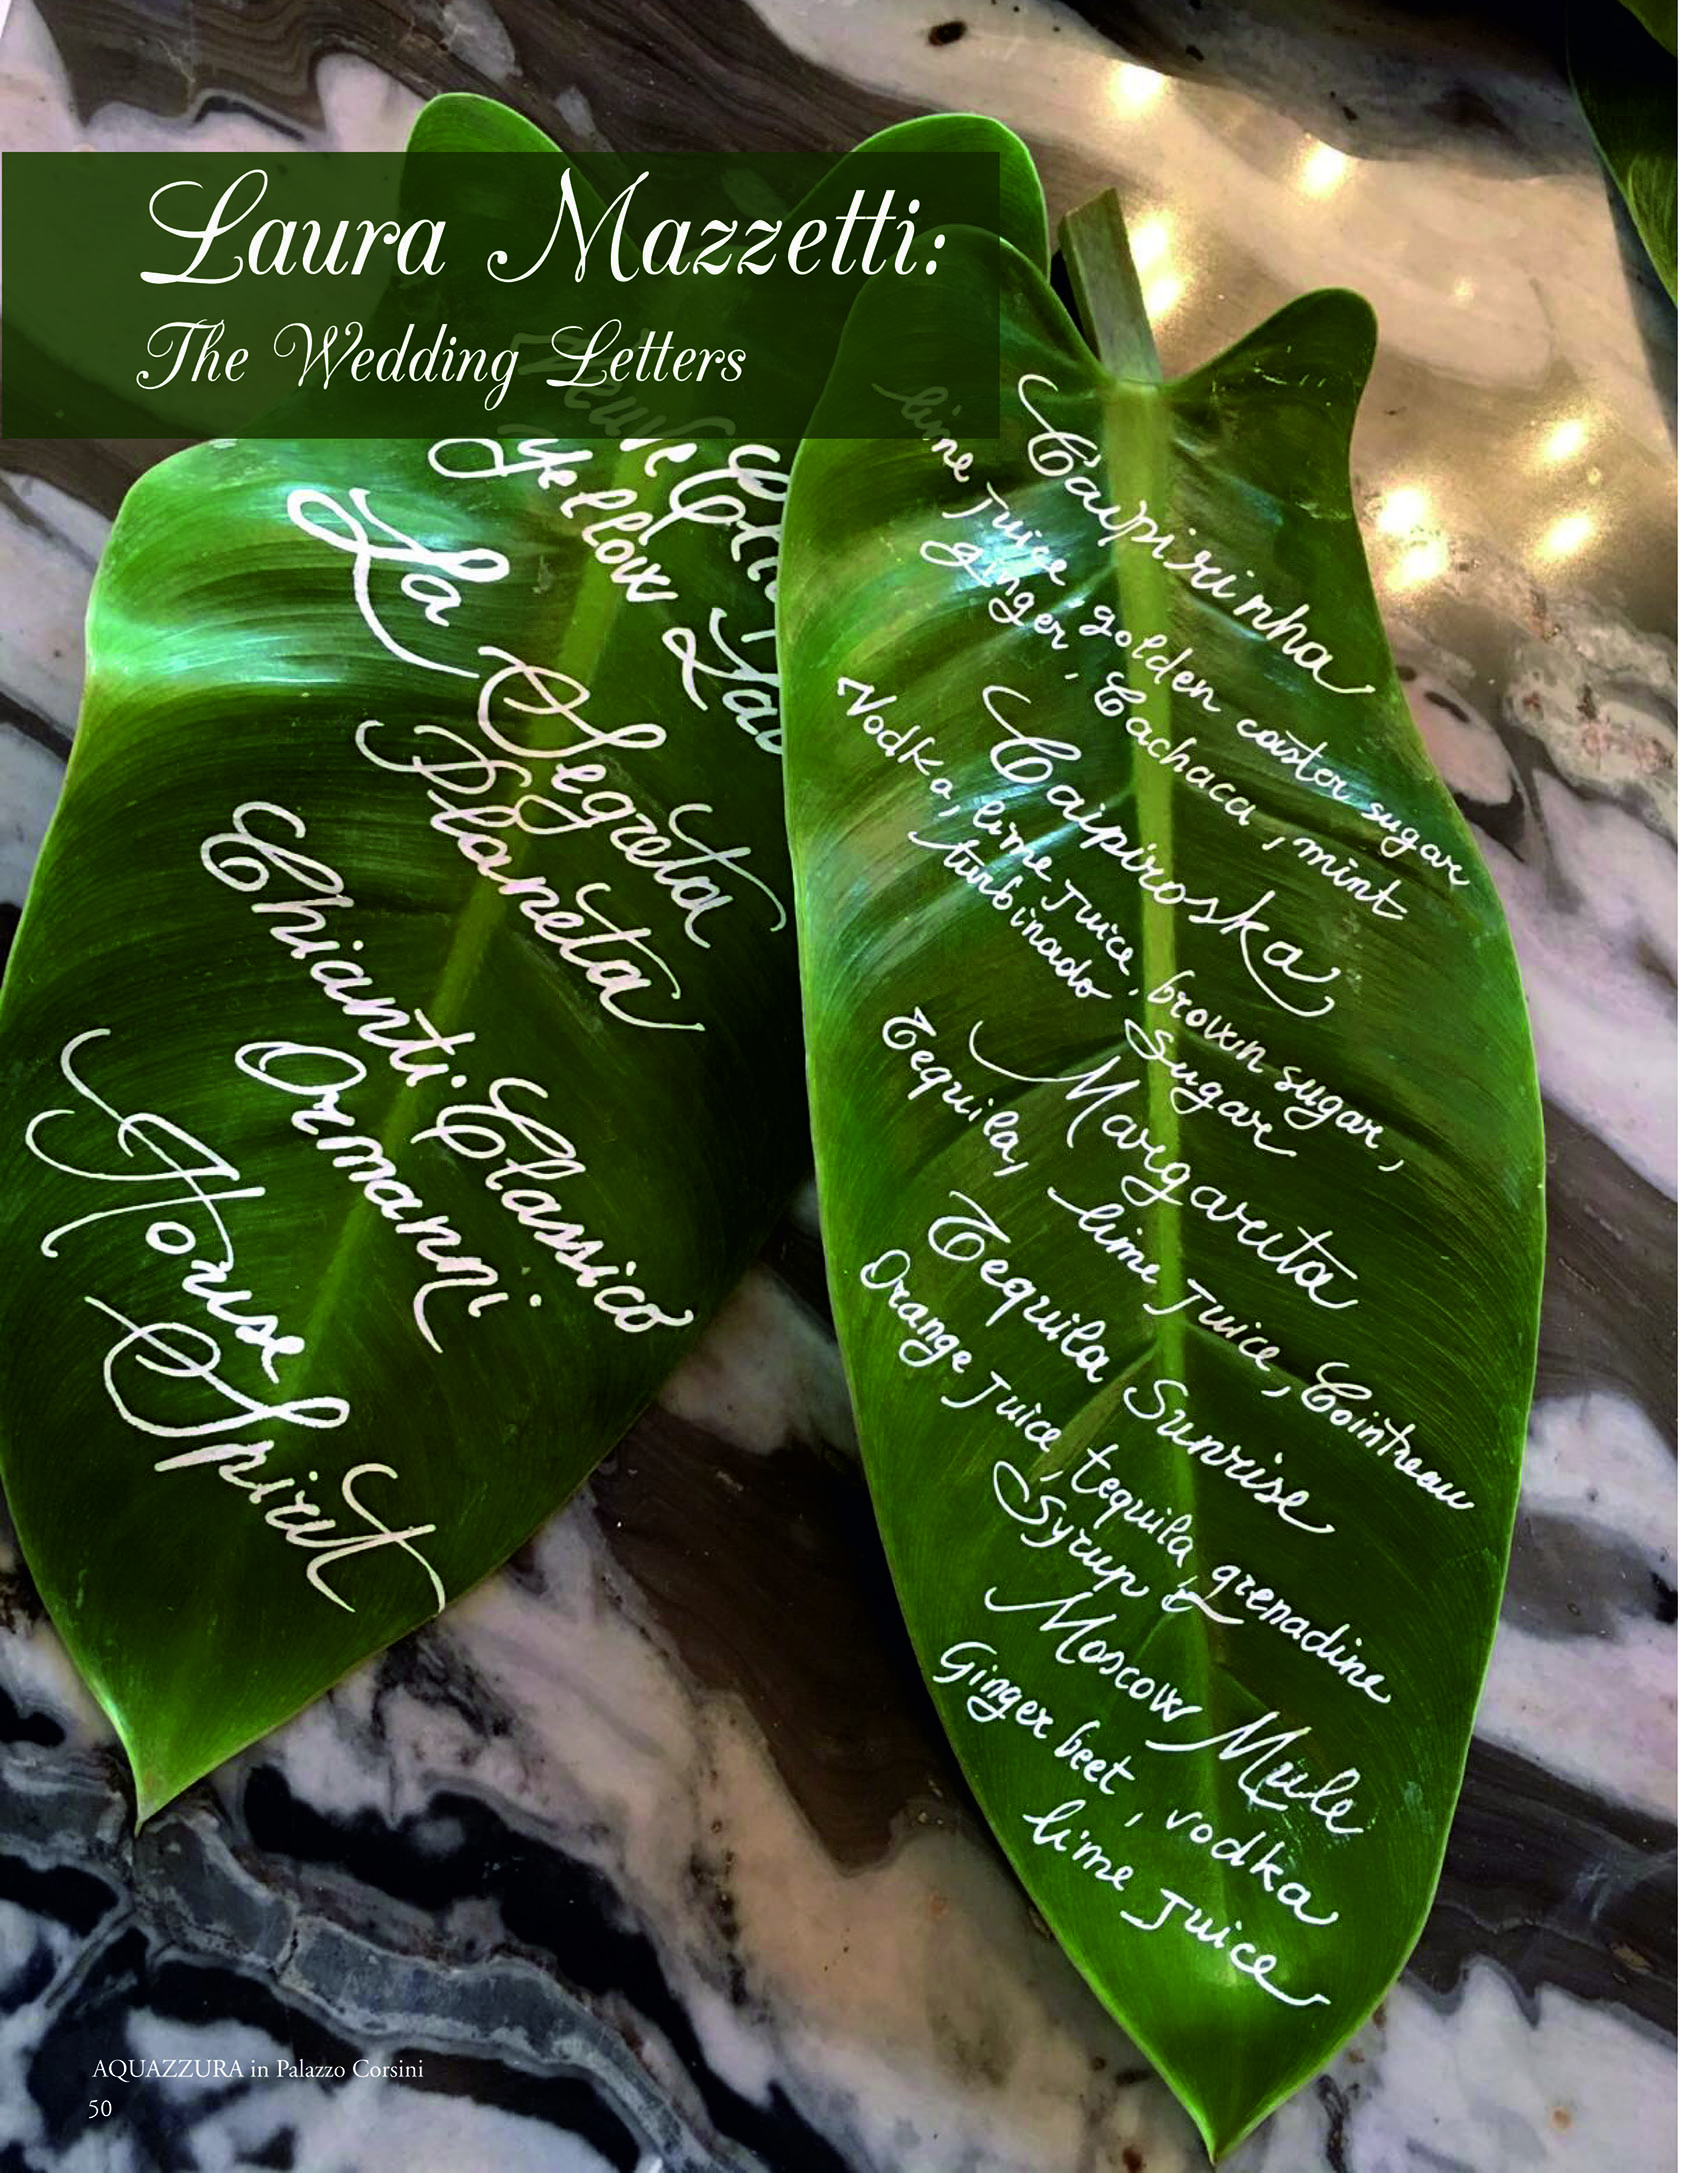 Laura Mazzetti:
The Wedding Letters
Yellow
La Segreta
Planeta
Chianti Classico
Ormanni
House
Spirit
Caipirinha
lime juice, golden caster sugar
ginger, Cachaca, mint
Caipiroska
Vodka, lime juice, brown sugar,
turbinado Sugar
Margarita
Tequila, lime juice, Cointreau
Tequila Sunrise
Orange juice, tequila, grenadine
Syrup
Moscow Mule
Ginger beet, vodka
lime juice
AQUAZZURA in Palazzo Corsini
50